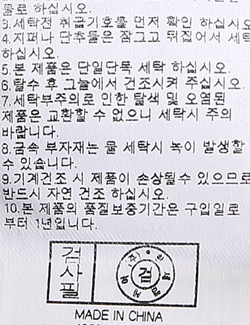 물로 하십시오.
3.세탁전 취급기호를 먼저 확인 하십시오
4.지퍼나 단추들은 잠그고 뒤집어서 세탁
하십시오.
5.본 제품은 단일단독 세탁 하십시오.
6.탈수 후 그늘에서 건조시켜 주십시오.
7.세탁부주의로 인한 탈색 및 오염된
제품은 교환할 수 없으니 세탁시 주의
바랍니다.
8.금속 부자재는 물 세탁시 녹이 발생할
수 있습니다.
9.기계건조 시 제품이 손상될수 있으므로
반드시 자연 건조 하십시오.
10.본 제품의 품질보증기간은 구입일로
부터 1년입니다.
검사필
검
MADE IN CHINA